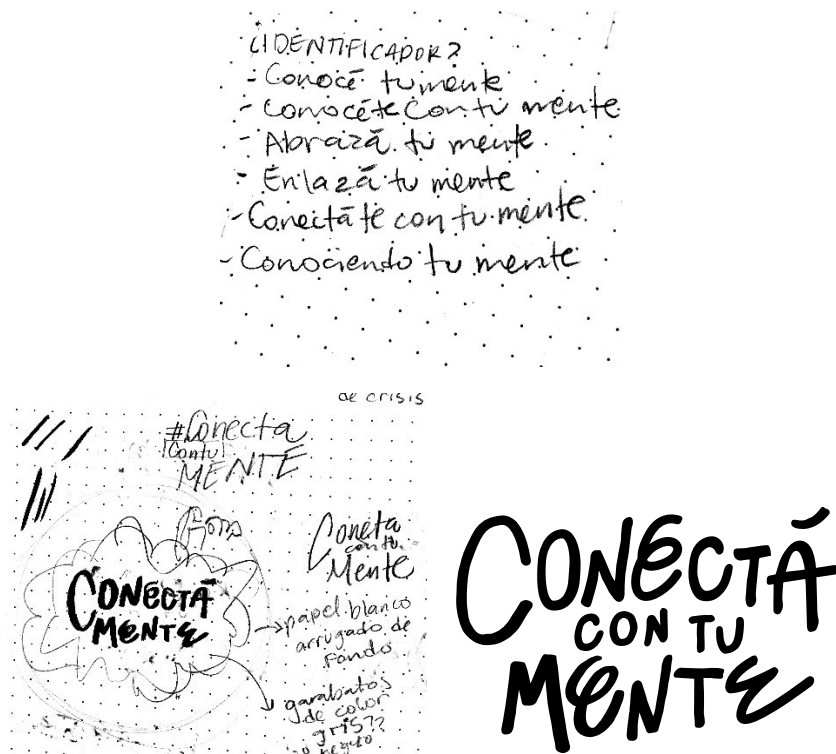 ¿IDENTIFICADOR?
- Conocé tu mente
- Conocéte con tu mente
- Abrazá tu mente
- Enlazá tu mente
- Conectáte con tu mente
- Conociendo tu mente
de crisis
#Conecta
Contu
MENTE
Coneta
con tu
Mente
CONECTÁ
MENTE
→papel blanco
arrugado de
fondo
garabatos
de color
gris??
o negro
CONECTÁ
CON TU
MENTE